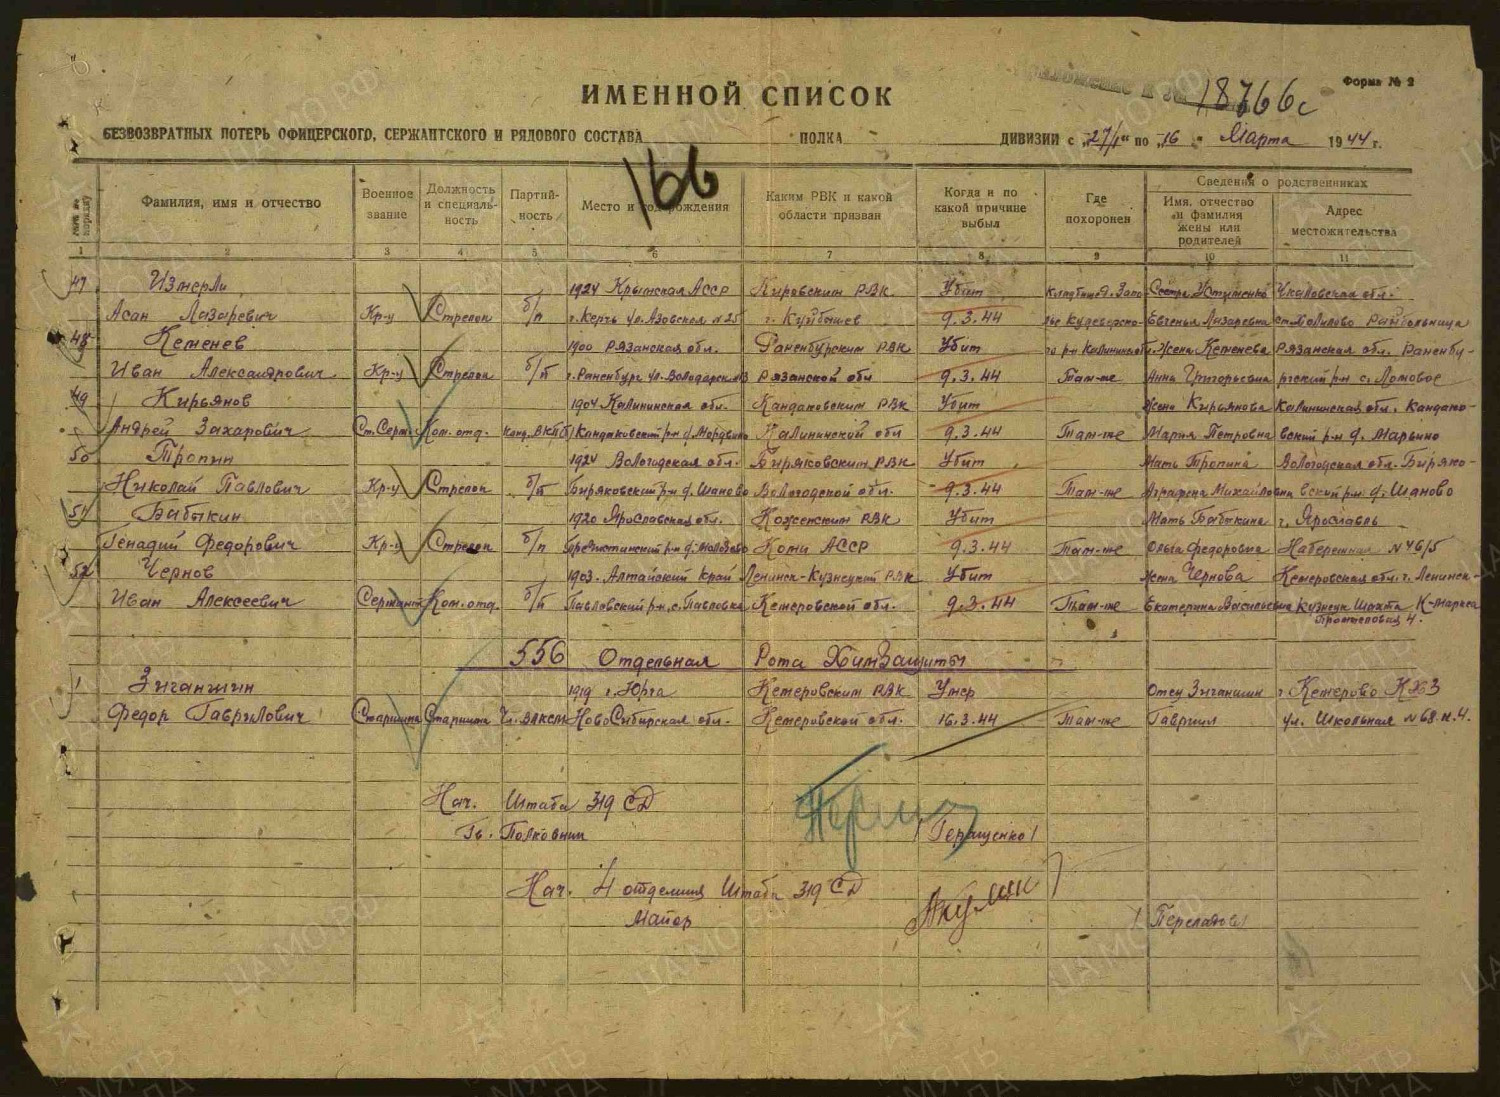 Форма № 2
18766с
ИМЕННОЙ СПИСОК
БЕЗВОЗВРАТНЫХ ПОТЕРЬ ОФИЦЕРСКОГО, СЕРЖАНТСКОГО И РЯДОВОГО СОСТАВА ПОЛКА ДИВИЗИИ с „27/I“ по „16“ Марта 1944 г.
166
Фамилия, имя и отчество Военное звание Должность и специальность Партийность Место и год рождения Каким РВК и какой области призван Когда и по какой причине выбыл Где похоронен Сведения о родственниках
Имя, отчество и фамилия жены или родителей Адрес местожительства
1 2 3 4 5 6 7 8 9 10 11
47 Измерли 1924 Крымская АССР Кировским РВК Убит Сестра Устименко Чкаловская обл.
Асан Лазаревич Кр-ц Стрелок б/п г. Керчь ул. Азовская №25 г. Куйбышев 9.3.44 Евгенья Лазаревна райбольница
48 Кеменев 1900 Рязанская обл. Раненбургским РВК Убит Жена Кеменева Рязанская обл. Раненбу-
Иван Александрович Кр-ц Стрелок б/п г. Раненбург ул. Володарская Рязанской обл 9.3.44 Там-же Анна Григорьевна ргский р-н с. Ломовое
49 Кирьянов 1904 Калининская обл. Кандаковским РВК Убит Жена Кирьянова Калининская обл. Кандако-
Андрей Захарович Ст. Серж. Ком. отд. Канд. ВКП(б) Кандаковский р-н д. Мордвино Калининской обл 9.3.44 Там-же Мария Петровна вский р-н д. Марьино
50 Тропин 1924 Вологодская обл. Биряковским РВК Убит Мать Тропина Вологодская обл. Биряко-
Николай Павлович Кр-ц Стрелок б/п Биряковский р-н д. Шаново Вологодской обл. 9.3.44 Там-же Аграфена Михайловна вский р-н д. Шаново
51 Бабыкин 1920 Ярославская обл. Кожемским РВК Убит Мать Бабыкина г. Ярославль
Генадий Федорович Кр-ц Стрелок б/п Коми АССР 9.3.44 Там-же Ольга Федоровна Набережная №46/5
52 Чернов 1903. Алтайский Край Ленинск-Кузнецкий РВК Убит Жена Чернова Кемеровская обл. г. Ленинск-
Иван Алексеевич Сержант Ком. отд. б/п Павловский р-н, с. Павловка Кемеровской обл. 9.3.44 Там-же Екатерина Васильевна Кузнецк Шахта К-Маркса
Промысловая 4.
556 Отдельная Рота Химзащиты
1 Зиганшин 1919 г. Юрга Кемеровским РВК Умер Отец Зиганшин г Кемерово КХЗ
Федор Гаврилович Старшина Старшина Чл. ВЛКСМ Ново Сибирская обл. Кемеровской обл. 16.3.44 Там-же Гаврил ул. Школьная №68 к. 4.
Нач. Штаба 319 СД
Гв. Полковник /Геращенко/
Нач. 4 отделения Штаба 319 СД
Майор